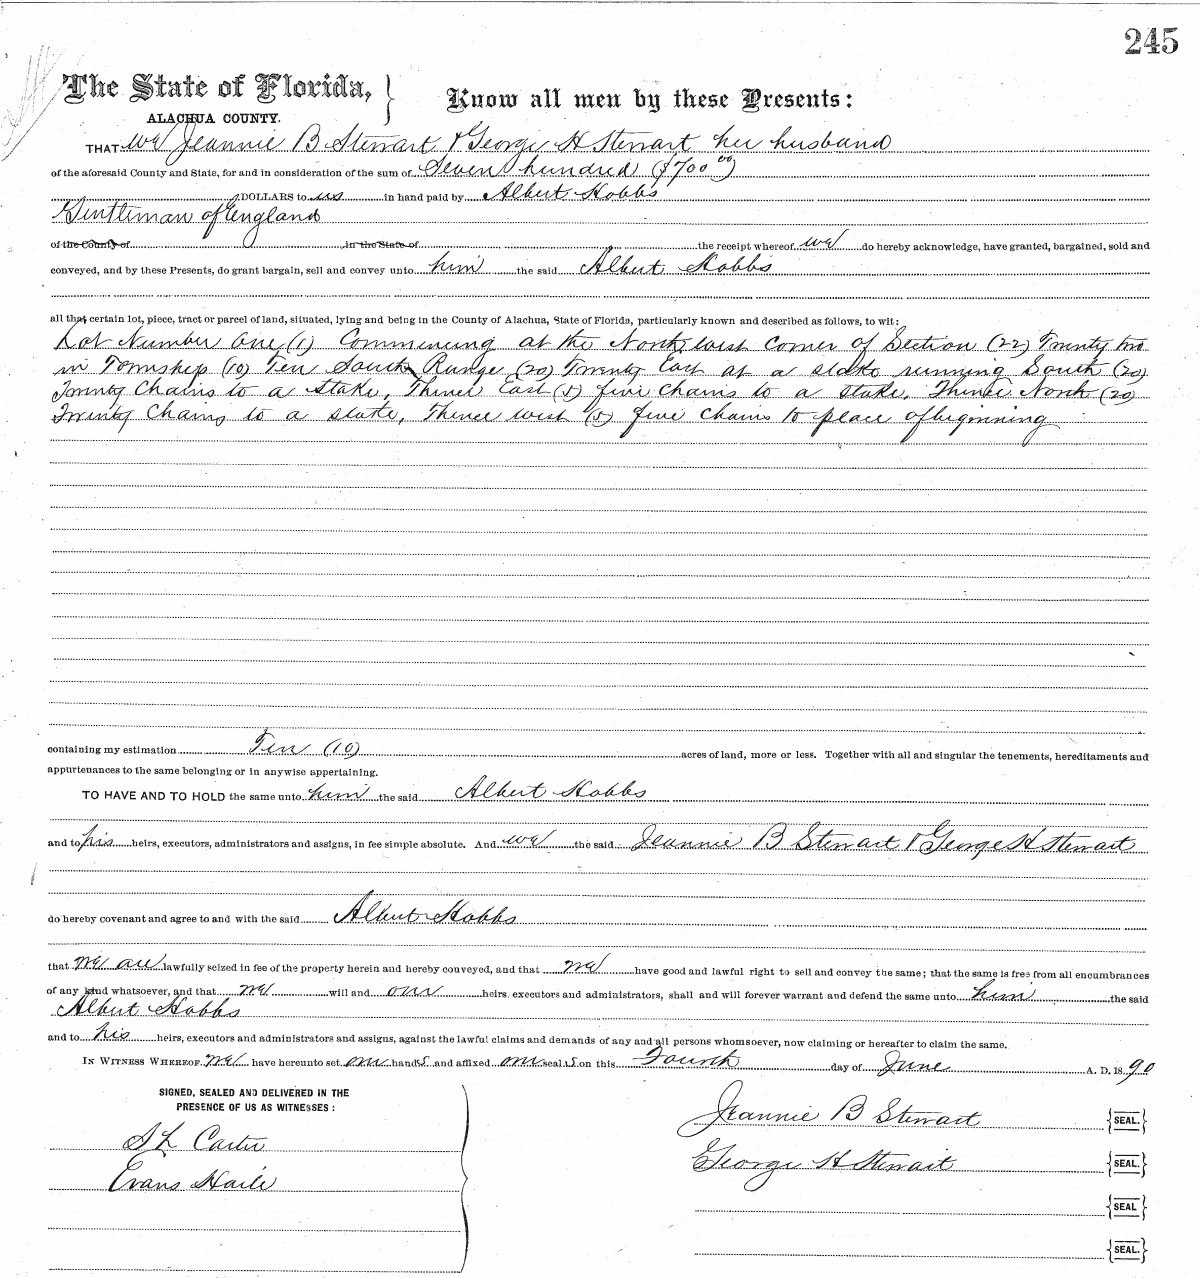 245
The State of Florida, } Know all men by these Presents:
ALACHUA COUNTY.
THAT we Jeannie B Stewart & George H Stewart her husband
of the aforesaid County and State, for and in consideration of the sum of Seven hundred ($700 00)
DOLLARS to us in hand paid by Albert Hobbs
Gentleman of England
of the County of in the State of the receipt whereof we do hereby acknowledge, have granted, bargained, sold and
conveyed, and by these Presents, do grant bargain, sell and convey unto him the said Albert Hobbs
all that certain lot, piece, tract or parcel of land, situated, lying and being in the County of Alachua, State of Florida, particularly known and described as follows, to wit:
Lot Number One (1) Commencing at the North west Corner of Section (22) Twenty two
in Township (10) Ten South Range (20) Twenty East at a stake running South (20)
Twenty Chains to a stake, Thence East (5) five chains to a stake, Thence North (20)
Twenty Chains to a stake, Thence west (5) five chains to place of beginning
containing my estimation Ten (10) acres of land, more or less. Together with all and singular the tenements, hereditaments and
appurtenances to the same belonging or in anywise appertaining.
TO HAVE AND TO HOLD the same unto him the said Albert Hobbs
and to his heirs, executors, administrators and assigns, in fee simple absolute. And we the said Jeannie B Stewart & George H Stewart
do hereby covenant and agree to and with the said Albert Hobbs
that we are lawfully seized in fee of the property herein and hereby conveyed, and that we have good and lawful right to sell and convey the same; that the same is free from all encumbrances
of any kind whatsoever, and that we will and our heirs executors and administrators, shall and will forever warrant and defend the same unto him the said
Albert Hobbs
and to his heirs, executors and administrators and assigns, against the lawful claims and demands of any and all persons whomsoever, now claiming or hereafter to claim the same.
IN WITNESS WHEREOF we have hereunto set our hands and affixed our seals on this Fourth day of June A. D. 1890
SIGNED, SEALED AND DELIVERED IN THE
PRESENCE OF US AS WITNESSES:
S L Carter
Evans Haile
Jeannie B Stewart {SEAL.}
George H Stewart {SEAL.}
{SEAL}
{SEAL.}